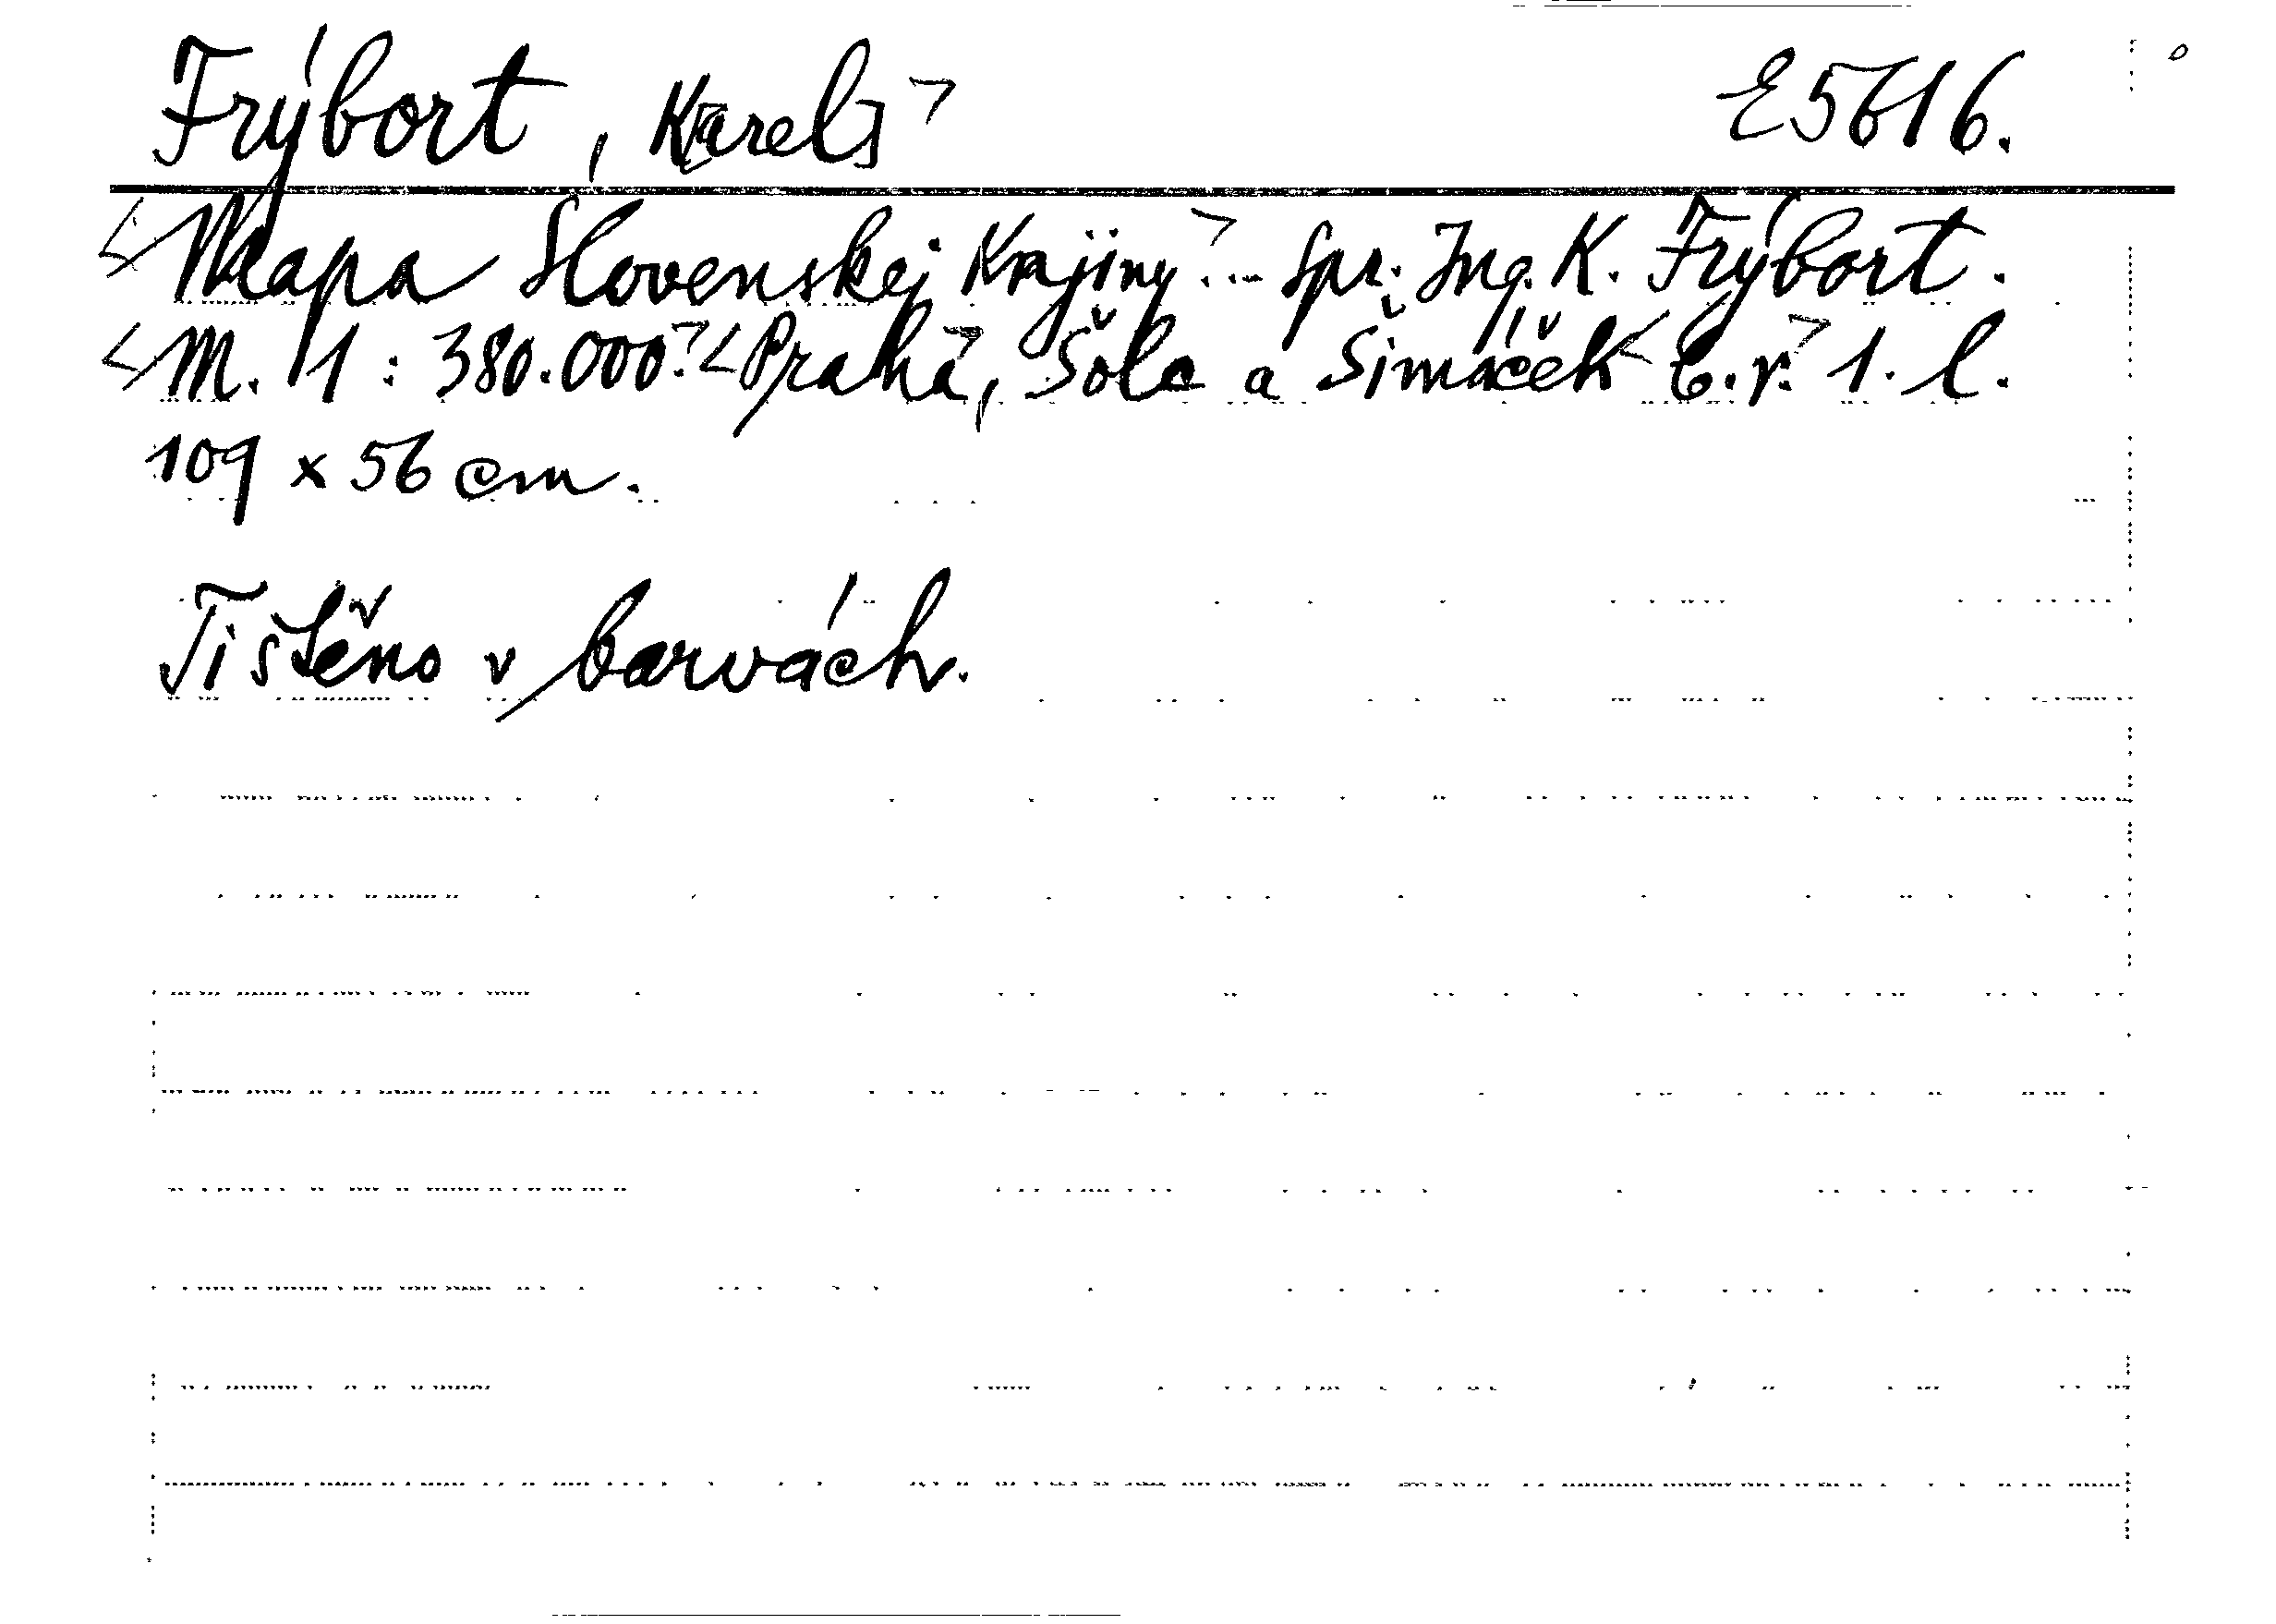 Frýbort, K[arel] E 5616.
Mapa Slovenskej Krajiny. - Spr. Ing. K. Frýbort.
M. 1 : 380.000. Praha, Šolc a Šimáček b. r. 1. l.
109 x 56 cm.
Tištěno v barvách.